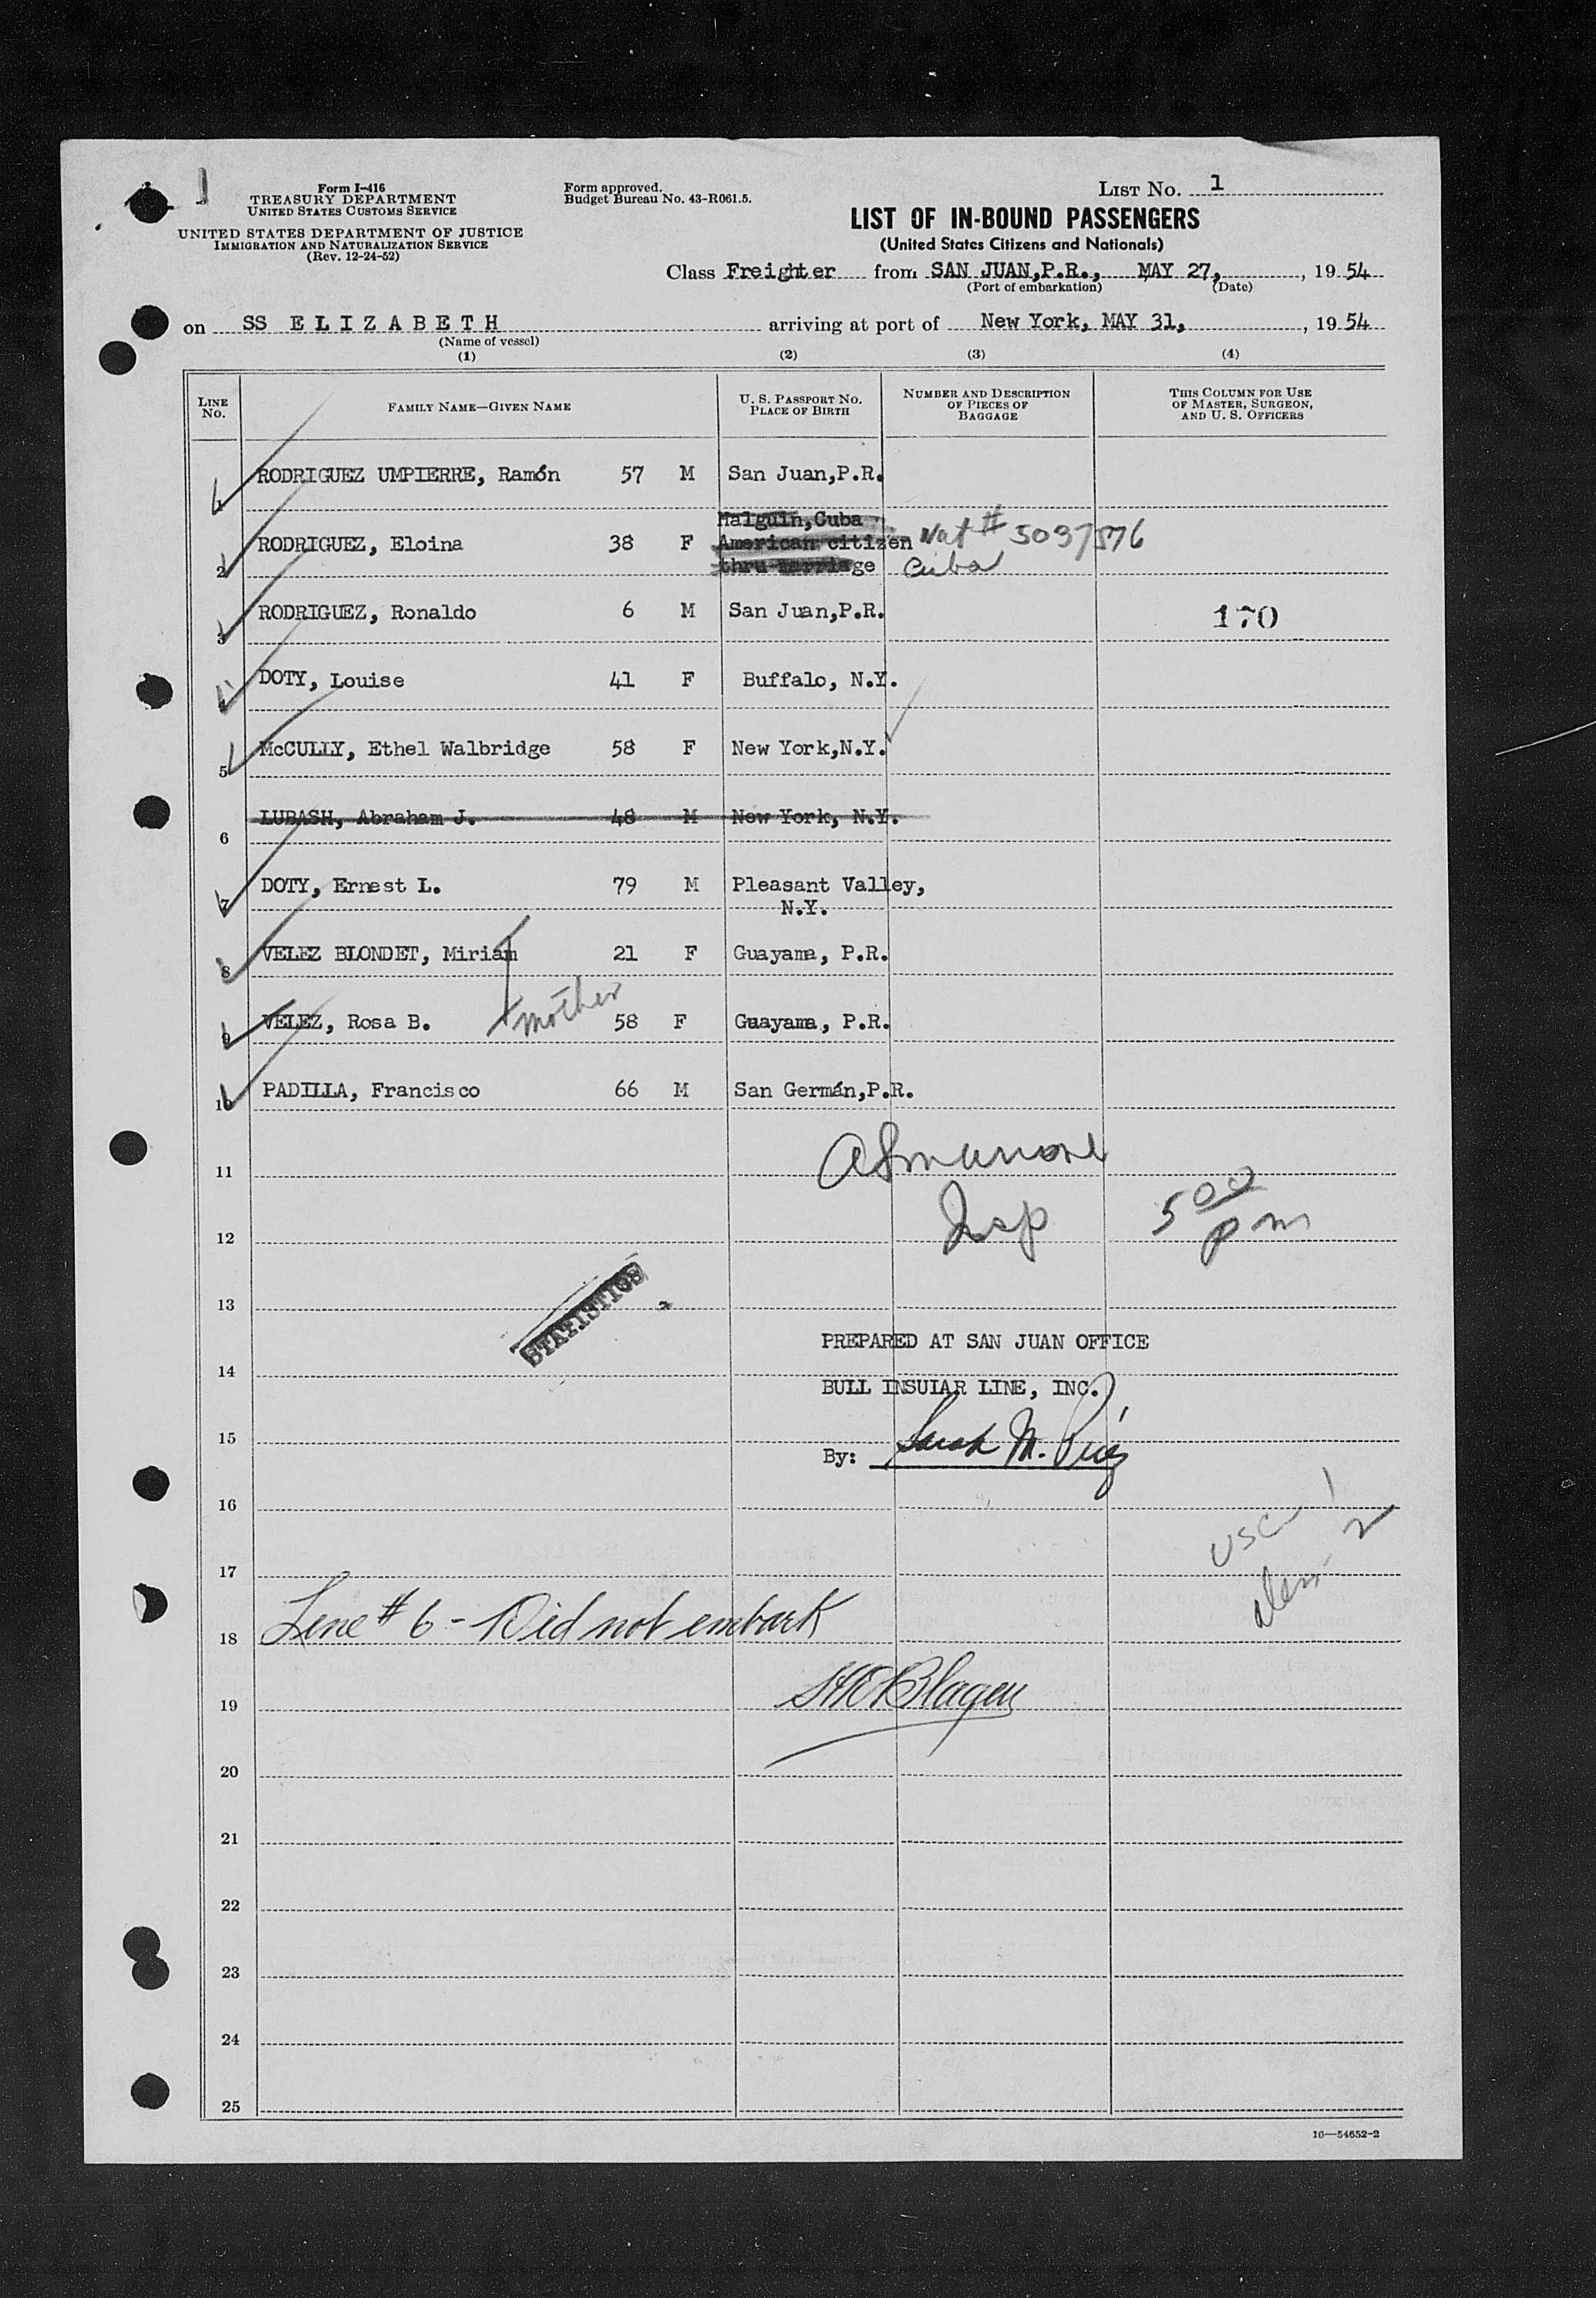 1
Form I-416
TREASURY DEPARTMENT
UNITED STATES CUSTOMS SERVICE
UNITED STATES DEPARTMENT OF JUSTICE
IMMIGRATION AND NATURALIZATION SERVICE
(Rev. 12-24-52)
Form approved.
Budget Bureau No. 43-R061.5.
LIST NO. 1
LIST OF IN-BOUND PASSENGERS
(United States Citizens and Nationals)
Class Freighter from SAN JUAN,P.R., MAY 27, , 19 54
(Port of embarkation) (Date)
on SS ELIZABETH arriving at port of New York, MAY 31, , 19 54
(Name of vessel)
(1) (2) (3) (4)
LINE NO. FAMILY NAME—GIVEN NAME U. S. PASSPORT NO. PLACE OF BIRTH NUMBER AND DESCRIPTION OF PIECES OF BAGGAGE THIS COLUMN FOR USE OF MASTER, SURGEON, AND U. S. OFFICERS
1 RODRIGUEZ UMPIERRE, Ramón 57 M San Juan,P.R.
Halguin,Cuba
2 RODRIGUEZ, Eloina 38 F American citizen Nat # 5037576
thru marriage Cuba
3 RODRIGUEZ, Ronaldo 6 M San Juan,P.R. 170
4 DOTY, Louise 41 F Buffalo, N.Y.
5 McCULLY, Ethel Walbridge 58 F New York,N.Y.
6 LUBASH, Abraham J. 48 M New York, N.Y.
7 DOTY, Ernest L. 79 M Pleasant Valley,
N.Y.
8 VELEZ BLONDET, Miriam 21 F Guayama, P.R.
9 VELEZ, Rosa B. mother 58 F Guayama, P.R.
10 PADILLA, Francisco 66 M San Germán,P.R.
11
12 Insp 5 00 pm
13 STATISTICS
PREPARED AT SAN JUAN OFFICE
14
BULL INSULAR LINE, INC.
15
By: Sarah M.
16
USC 1
17
2
18 Line # 6 - Did not embark
19
20
21
22
23
24
25
16—54652-2